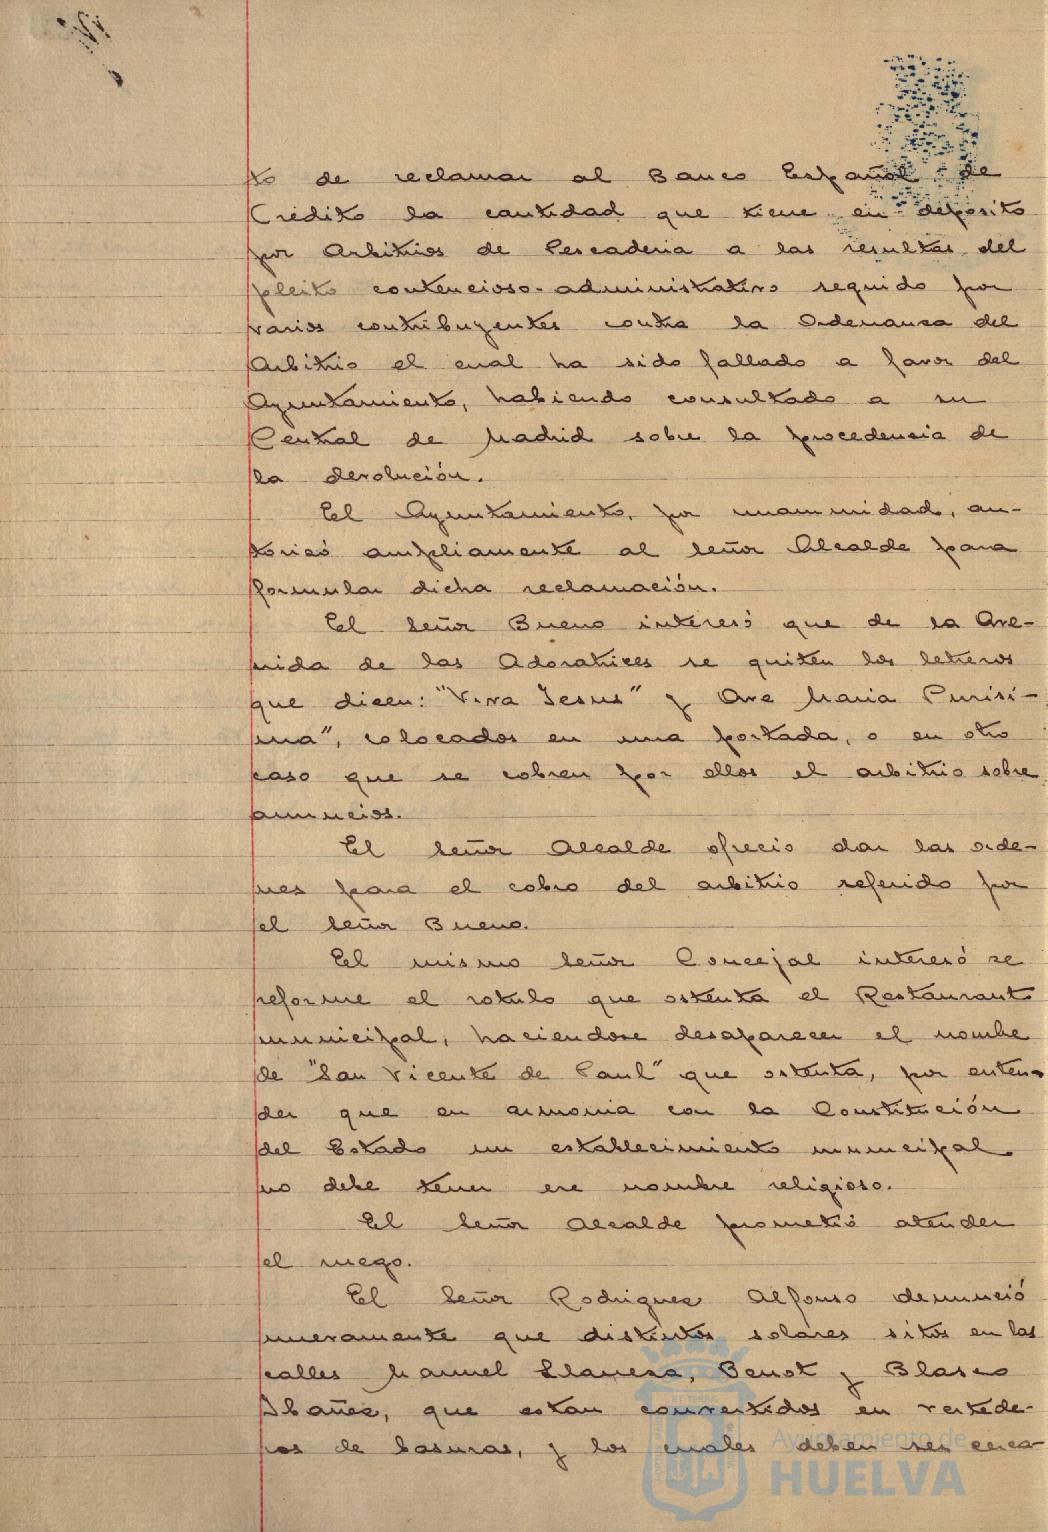 to de reclamar al Banco Español de
Crédito la cantidad que tiene en deposito
por Arbitrios de Pescaderia a las resultas del
pleito contencioso-administrativo seguido por
varios contribuyentes contra la Ordenanza del
Arbitrio el cual ha sido fallado a favor del
Ayuntamiento, habiendo consultado a su
Central de Madrid sobre la procedencia de
la devolución.
El Ayuntamiento, por unanimidad, au-
torizó ampliamente al Señor Alcalde para
formular dicha reclamación.
El Señor Bueno interesó que de la Ave-
nida de las Adoratrices se quiten los letreros
que dicen: "Viva Jesus" y Ave Maria Purisi-
ma", colocados en una portada, o en otro
caso que se cobren por ellos el arbitrio sobre
anuncios.
El Señor Alcalde ofreció dar las orde-
nes para el cobro del arbitrio referido por
el Señor Bueno.
El mismo Señor Concejal interesó se
reforme el rotulo que ostenta el Restaurant
municipal, haciendose desaparecer el nombre
de "San Vicente de Paul" que ostenta, por enten-
der que en armonia con la Constitución
del Estado un establecimiento municipal
no debe tener ese nombre religioso.
El Señor Alcalde prometió atender
el ruego.
El Señor Rodriguez Alfonso denunció
nuevamente que distintos solares sitos en las
calles Manuel Llaneza, Benot y Blasco
Ibañez, que estan convertidos en vertede-
ros de basuras, y los cuales deben ser cerca-
Ayuntamiento de
HUELVA